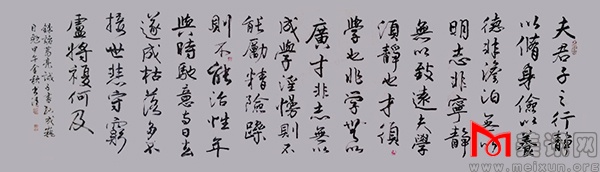 夫君子之行靜
以脩身儉以養
德非澹泊無以
明志非寧靜
無以致遠夫學
須靜也才須
學也非學無以
廣才非志無以
成學淫慢則不
能勵精險躁
則不能治性年
與時馳意與日去
遂成枯落多不
接世悲守窮
廬將復何及
錄諸葛亮誡子書
甲午金秋
M 美讯网
www.meixun.org